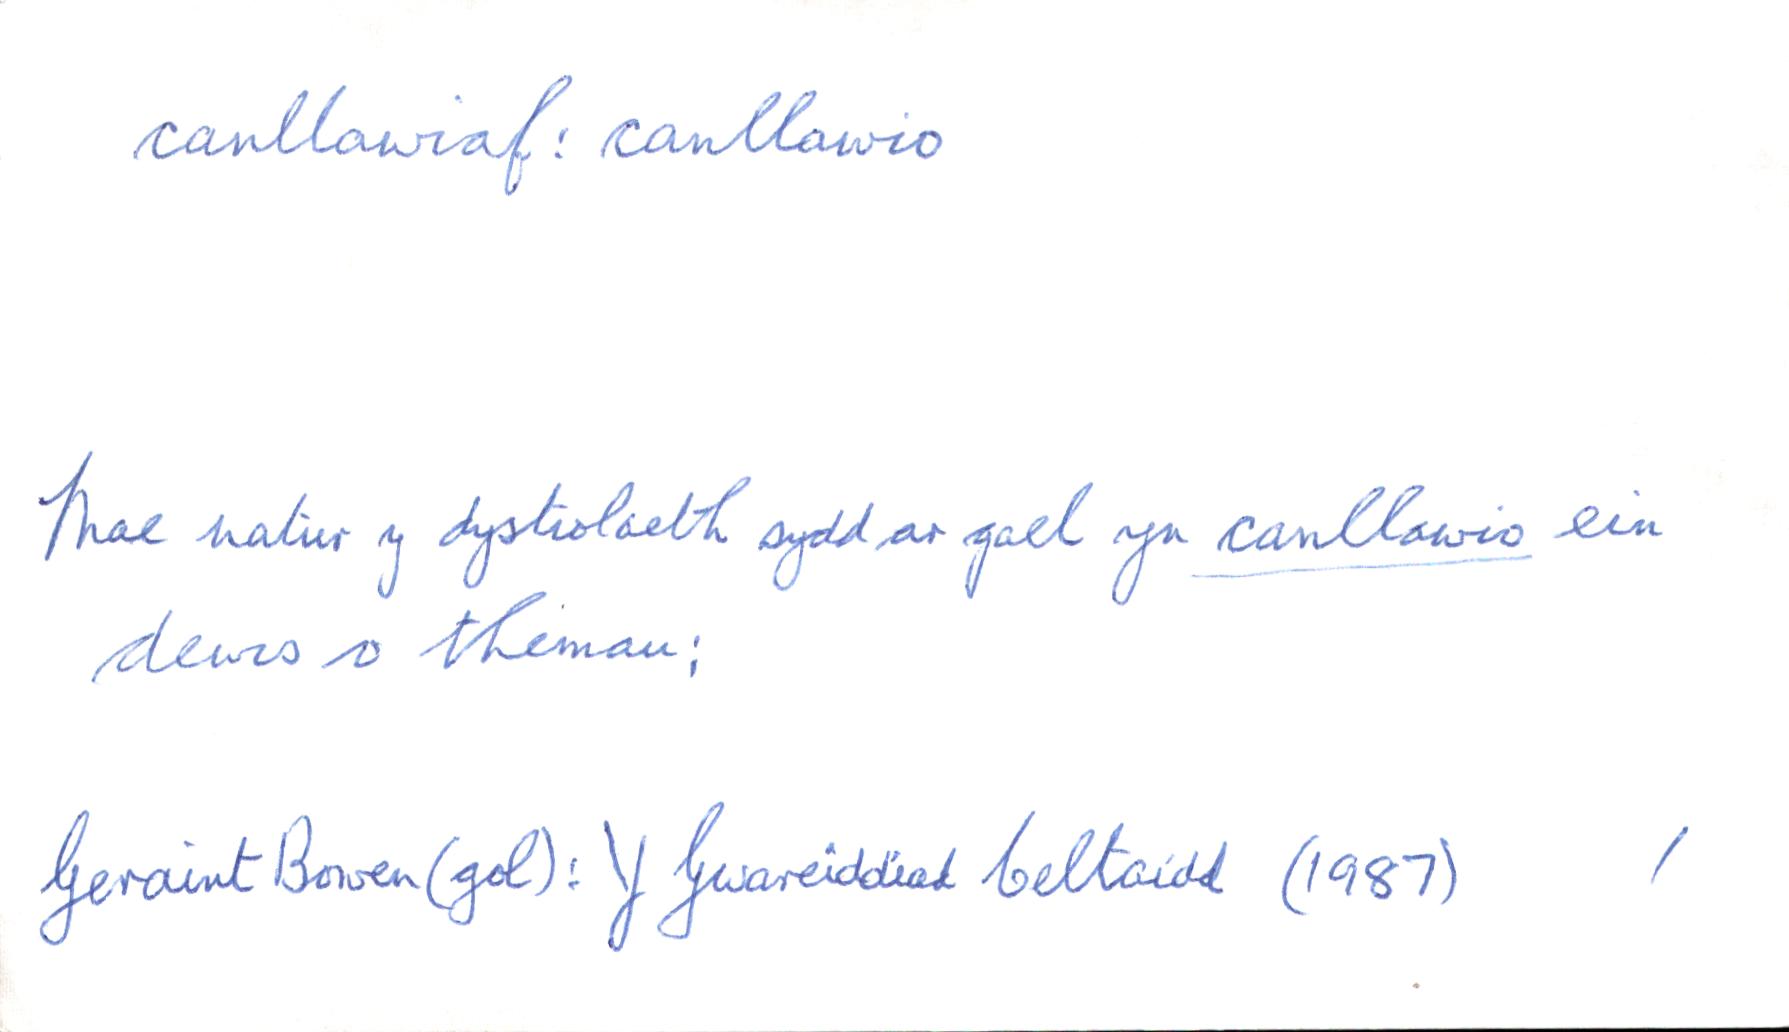 canllawiaf: canllawio
Mae natur y dystiolaeth sydd ar gael yn canllawio ein
dewis o themau;
Geraint Bowen (gol): Y Gwareiddiad Celtaidd (1987) /